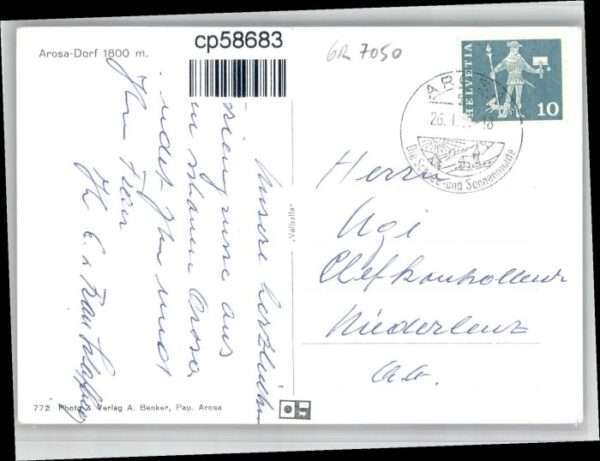 Arosa-Dorf 1800 m.
cp58683
GR 7050
HELVETIA
10
AR
26. I.
Die Schnee- und Sonnenmulde
Unsere herzlichen
aus
schönen Arosa
sendet Ihnen und
Ihrer Frau
H. E. u. Frau
Herrn
Chefkontrolleur
Niederlenz
Aa.
"Valsella"
772 Photo & Verlag A. Benker, Pap. Arosa